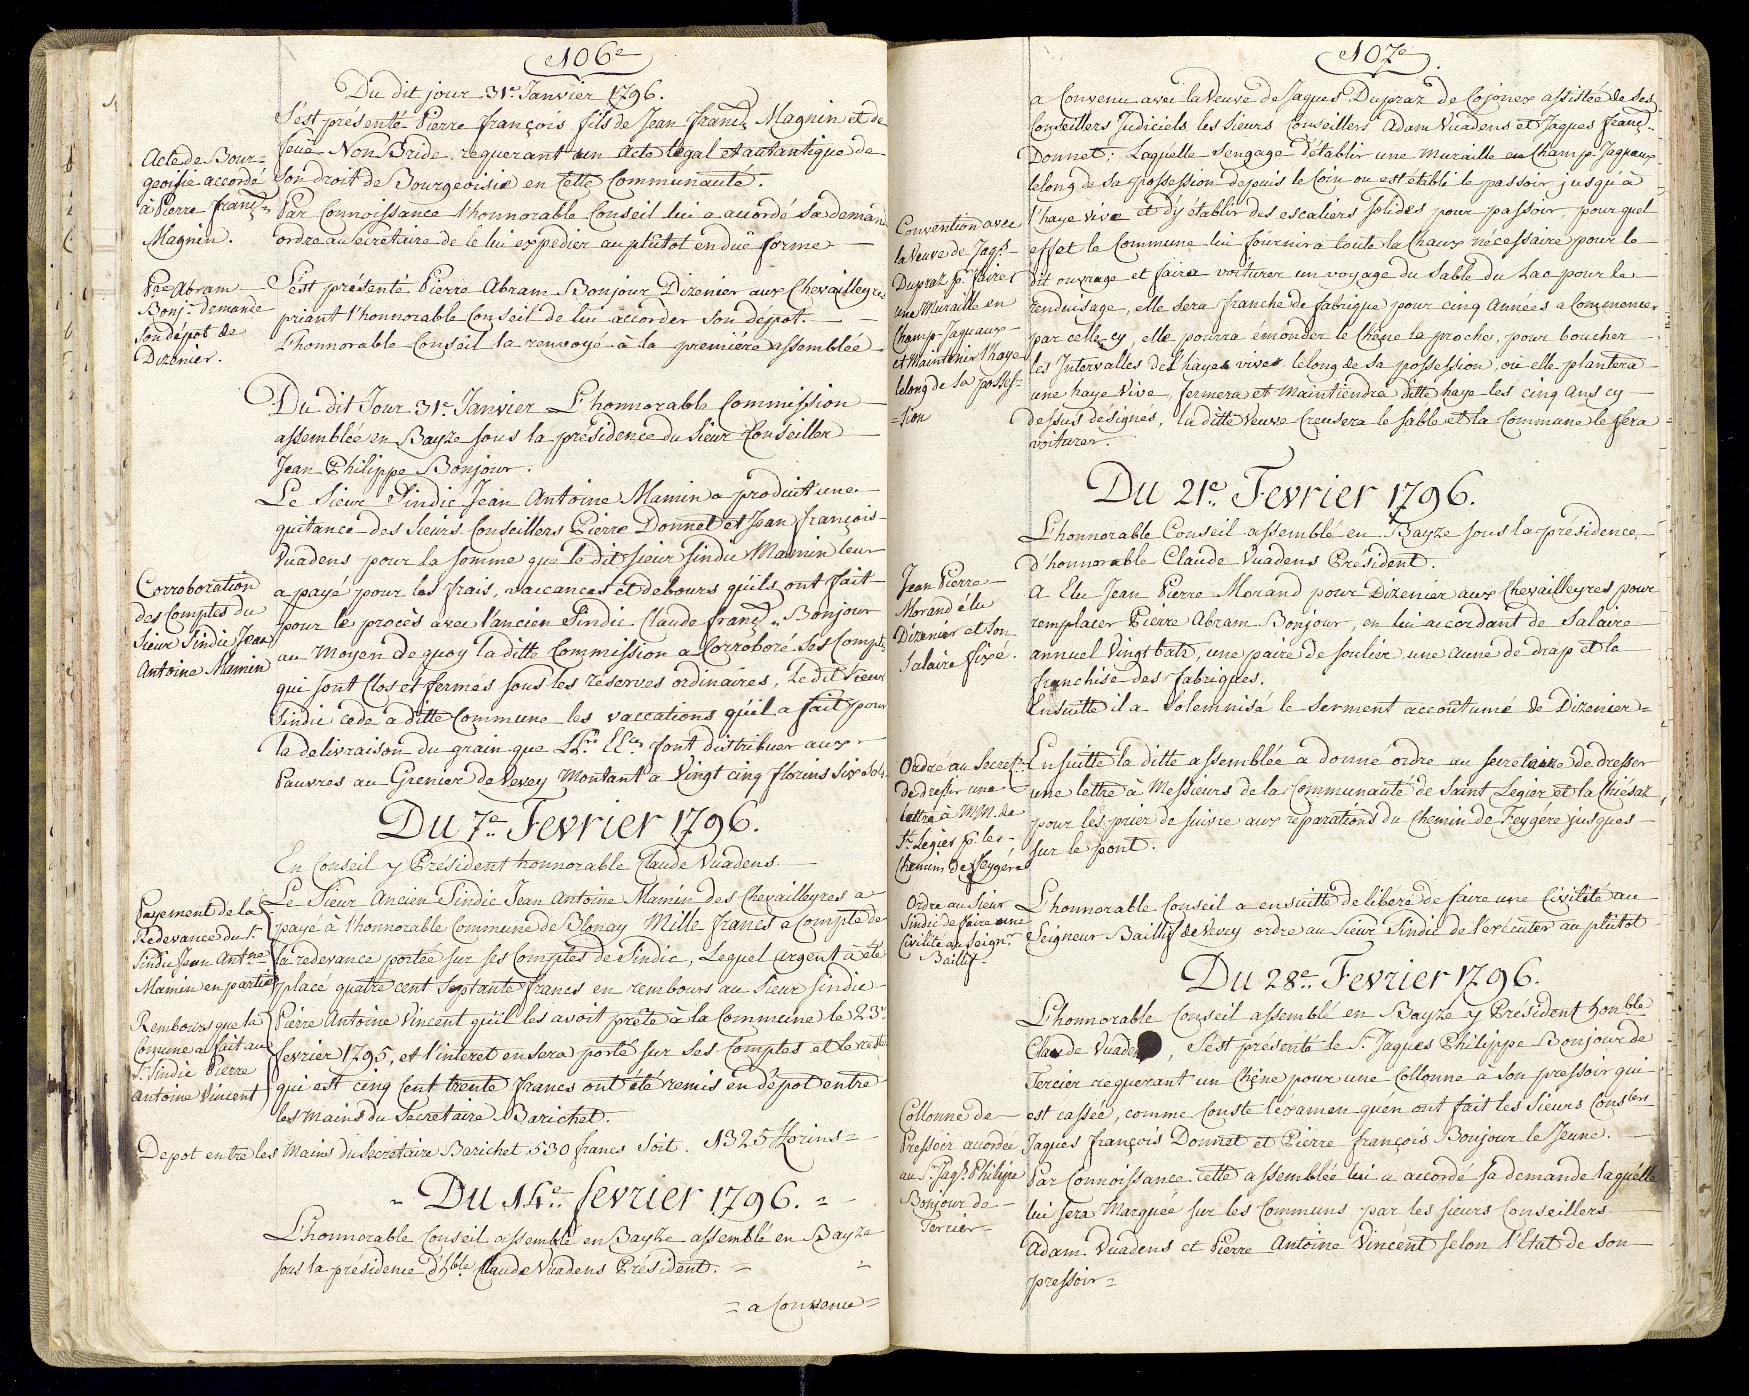 106e
Du dit jour 31e Janvier 1796.
S'est présenté Pierre françois fils de Jean franç.s Magnin et de
feue Non Bride, requerant un Acte légal et autantique de
son droit de Bourgeoisie en Cette Communauté.
Acte de Bour=
geoisie accordé
à Pierre franç.s
Magnin.
Par Connoissance l'honnorable Conseil lui a accordé sa deman
ordre au secretaire de le lui expedier au plûtot en düe forme
Pre Abram
Bonj.r demande
son dépot de
Dizenier.
S'est présenté Pierre Abram Bonjour Dizenier aux Chevailleyres
priant l'honnorable Conseil de lui accorder son depot.
L'honnorable Conseil la renvoyé à la première assemblée
Du dit Jour 31e Janvier L'honnorable Commission
assemblée en Bayze sous la présidence du Sieur Conseiller
Jean Philippe Bonjour.
Le Sieur Sindic Jean Antoine Mamin a produit une
quitance des sieurs Conseillers Pierre Donnet et Jean françois
Vuadens pour la somme que le dit sieur sindic Mamin leur
a payé pour les frais, vaccances et debours qu'ils ont fait
pour le procès avec l'ancien Sindic Claude franç.s Bonjour
au Moyen de quoy la ditte Commission a Corroboré ses Compts
qui sont Clos et fermés sous les réserves ordinaires, Le dit Sieur
Sindic cede a ditte Commune les vaccations qu'il a fait pour
la delivraison du grain que LL.rs EE.ces font distribuer aux
Pauvres au Grenier de Vevey Montant a Vingt cinq florins six sols
Corroboration
des Comptes du
Sieur Sindic Jean
Antoine Mamin
Du 7e Fevrier 1796.
En Conseil y Président honnorable Claude Vuadens.
Le Sieur Ancien Sindic Jean Antoine Mamin des Chevailleyres a
payé à l'honnorable Commune de Blonay Mille francs a Compte de
la redevance portée sur ses Comptes de Sindic, Lequel argent à été
placé quatre cent Septante francs en rembours au Sieur Sindic
Pierre Antoine Vincent qu'il les avoit prêté à la Commune le 23e
fevrier 1795, et l'interet en sera porté sur ses Comptes et le reste
qui est cinq cent trente francs ont été remis en dépot entre
les mains du Secretaire Barichet.
Payement de la
Redevance du Sr
Sindic Jean Ant.ne
Mamin en partie
Rembours que la
Comune a fait au
Sr Sindic Pierre
Antoine Vincent
Depot entre les Mains du Secretaire Barichet 530 francs soit. 1325 florins =
Du 14e fevrier 1796.
L'honnorable Conseil assemblé en Bayze assemblé en Bayze
sous la présidence d'hble Claude Vuadens Président. =
= a Convenu =
107e
a Convenu avec la Veuve de Jaques Dupraz de Cojonex assistée de ses
Conseillers Judiciels les sieurs Conseillers Adam Vuadens et Jaques franç.s
Donnet; Laquelle s'engage d'établir une muraille en Champ Jaquaux
le long de sa possession depuis le Coin ou est établi le passoir jusqu'à
l'haye vive et d'y établir des escaliers solides pour passoir, pour quel
effet la Commune lui fournira toute la Chaux nécessaire pour le
dit ouvrage et faira voiturer un voyage du Sable du Lac pour le
renduisage, elle sera franche de fabrique pour cinq Années a Commencer
par celle cy, elle pourra émonder le Chêne le proche, pour boucher
les Intervalles de l'haye vive le long de sa possession, où elle plantera
une haye Vive, fermera et Maintiendra ditte haye les cinq Ans cy
dessus designés, la ditte Veuve Creusera le sable et la Commune le fera
voiturer.
Convention avec
la Veuve de Jaq.s
Dupraz pr faire
une Muraille en
Champ Jaquaux
et Maintenir l'haye
le long de sa posses=
=sion
Du 21e Fevrier 1796.
L'honnorable Conseil assemblé en Bayze sous la présidence
d'honnorable Claude Vuadens Président.
A Elu Jean Pierre Morand pour Dizenier aux Chevailleyres pour
remplacer Pierre Abram Bonjour, en lui accordant de salaire
annuel Vingt batz, une paire de soulier, une aune de drap et la
franchise des fabriques.
Ensuitte il a Solemnisé le serment accoutumé de Dizenier =
Jean Pierre
Morand élu
Dizenier et Son
Salaire fixé.
Ensuitte la ditte assemblée a donné ordre au secretaire de dresser
une lettre à Messieurs de la Communauté de Saint Legier et la Chiésaz,
pour les prier de suivre aux réparations du Chemin de Feygére jusques
sur le pont.
Ordre au Secret.re
de dresser une
lettre à MM. de
St Legier p. les
Chemin de Feygére
Ordre au Sieur
Sindic de faire une
Civilité au Seign.r
Baillif
L'honnorable Conseil a ensuitte deliberé de faire une Civilité au
Seigneur Baillif de Vevey ordre au Sieur Sindic de l'exécuter au plûtot
Du 28e Fevrier 1796.
L'honnorable Conseil assemblé en Bayze y Président honble
Claude Vuadens, S'est presenté le Sr Jaques Philippe Bonjour de
Tercier requerant un Chêne pour une Collonne à son pressoir qui
est cassée, comme Conste l'éxamen qu'en ont fait les Sieurs Conslers
Jaques françois Donnet et Pierre françois Bonjour le Jeune.
Par Connoissance cette assemblée lui a accordé sa demande laquelle
lui sera Marquée sur les Communs par les sieurs Conseillers
Adam Vuadens et Pierre Antoine Vincent selon l'Etat de son
pressoir =
Collonne de
Pressoir accordée
au Sr Jaq.s Philipe
Bonjour de
Tercier